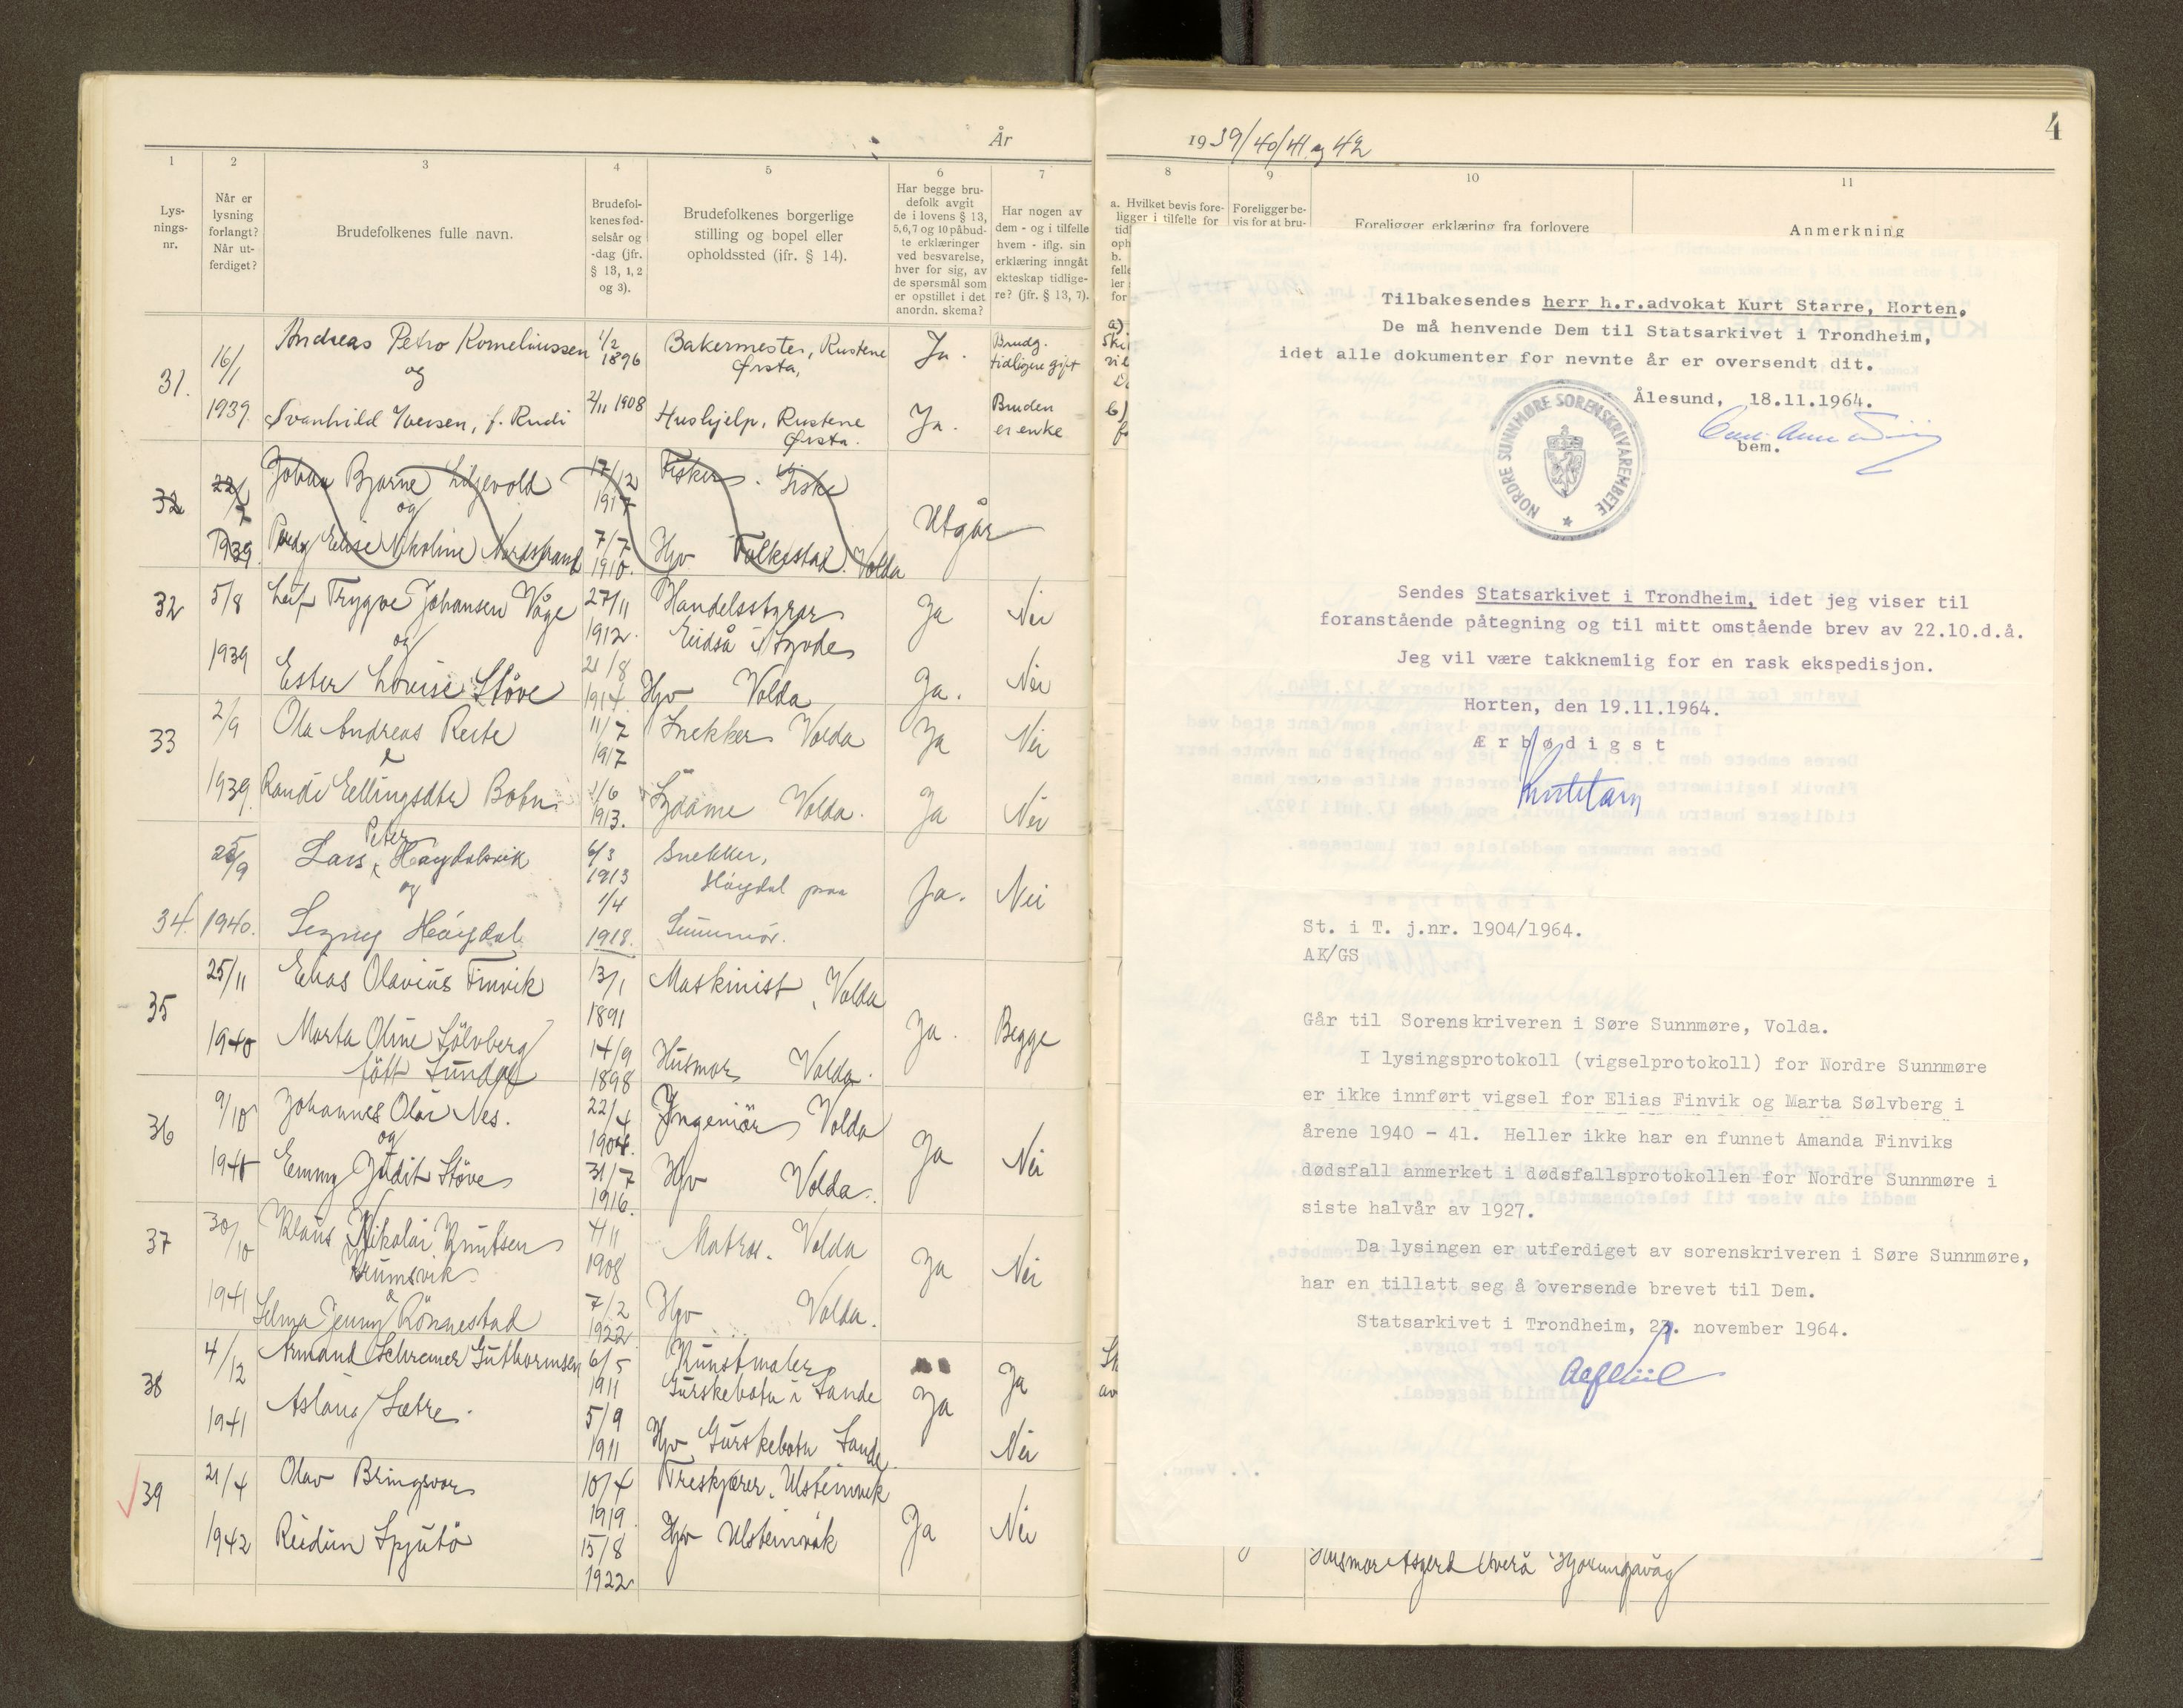 År
1
2
3
4
5
6
7
Lys-
nings-
nr.
Når er
lysning
forlangt?
Når ut-
ferdiget?
Brudefolkenes fulle navn.
Brudefol-
kenes fød-
selsår og
-dag (jfr.
§ 13, 1, 2
og 3).
Brudefolkenes borgerlige
stilling og bopel eller
opholdssted (ifr. § 14).
Har begge bru-
defolk avgit
de i lovens § 13,
5,6,7 og 10 påbud-
te erklæringer
ved besvarelse,
hver for sig, av
de spørsmål som
er opstillet i det
anordn. skema?
Har nogen av
dem - og i tilfelle
hvem - iflg. sin
erklæring inngåt
ekteskap tidlige-
re? (jfr. § 13, 7).
31. 16/1 1939. Andreas Petro Korneliussen 1/2 1896 Bakermester, Rustene Ørsta, Ja. Brudg. tidligere gift
og
Svanhild Iversen, f. Rudi 2/11 1908 Hushjelp, Rustene Ørsta. Ja. Bruden er enke
32 22/7 1939. Johan Bjarne Liljevold 17/12 1917 Fisker. Giske
og
Elise Nikoline Nordstrand 7/7 1910. Hjv Folkestad. Volda
Utgår
32 5/8 1939 Leif Trygve Johansen Våge 27/11 1912. Handelsstyrer Eidså i Syvde Ja Nei
og
Ester Lovise Støve 21/8 1914. Hjv Volda Ja. Nei
33 2/9 1939. Ola Andreas Reite 11/7 1917 Snekker Volda Ja Nei
Randi Ellingsdtr Bobn. 2/6 1913. Sydame Volda. Ja Nei
34. 25/9 1940. Lars Peter Høydalsvik 6/3 1913 Snekker, Høydal paa Ja. Nei
og
Signy Høydal 1/4 1918. Sunnmør.
35 25/11 1940 Elias Olavius Finvik 13/1 1891 Maskinist, Volda Ja. Begge
Marta Oline Sölvberg 14/9 1898 Husmor Volda.
født Lunde
36 9/10 1940 Johannes Olai Nes. 22/4 1908. Ingeniör Volda Ja Nei
og
Emmy Judit Støve 31/7 1916. Hjv Volda.
37 30/10 1941 Klaus Nikolai Knutsen Krumsvik 4/11 1908 Matros. Volda Ja Nei
&
Selma Jenny Rönnestad 7/2 1922 Hjv Volda.
38 4/12 1941 Armand Schreiner Guthormsen 6/5 1911 Kunstmaler Gurskebotn i Sande Ja Ja
Aslaug Sætre. 5/9 1911 Hjv Gurskebotn Sande Nei
39 21/4 1942 Olav Bringsvor 10/4 1919 Treskjærer. Ulsteinvik Ja Nei
Reidun Spjutö 15/8 1922 Hjv Ulsteinvik
1939/40/41 og 42
4
8
9
10
11
a. Hvilket bevis fore-
ligger i tilfelle for
Foreligger be-
vis for at bru-
Foreligger erklæring fra forlovere
Anmerkning
Tilbakesendes herr h.r.advokat Kurt Starre, Horten.
De må henvende Dem til Statsarkivet i Trondheim,
idet alle dokumenter for nevnte år er oversendt dit.
Ålesund, 18.11.1964.
bem.
NORDRE SUNNMØRE SORENSKRIVAREMBETE
Sendes Statsarkivet i Trondheim, idet jeg viser til
foranstående påtegning og til mitt omstående brev av 22.10.d.å.
Jeg vil være takknemlig for en rask ekspedisjon.
Horten, den 19.11.1964.
Ærbødigst
St. i T. j.nr. 1904/1964.
AK/GS
Går til Sorenskriveren i Søre Sunnmøre, Volda.
I lysingsprotokoll (vigselprotokoll) for Nordre Sunnmøre
er ikke innført vigsel for Elias Finvik og Marta Sølvberg i
årene 1940 - 41. Heller ikke har en funnet Amanda Finviks
dødsfall anmerket i dødsfallsprotokollen for Nordre Sunnmøre i
siste halvår av 1927.
Da lysingen er utferdiget av sorenskriveren i Søre Sunnmøre,
har en tillatt seg å oversende brevet til Dem.
Statsarkivet i Trondheim, 27. november 1964.
Husmor Asgerd Overå Hjørungavåg